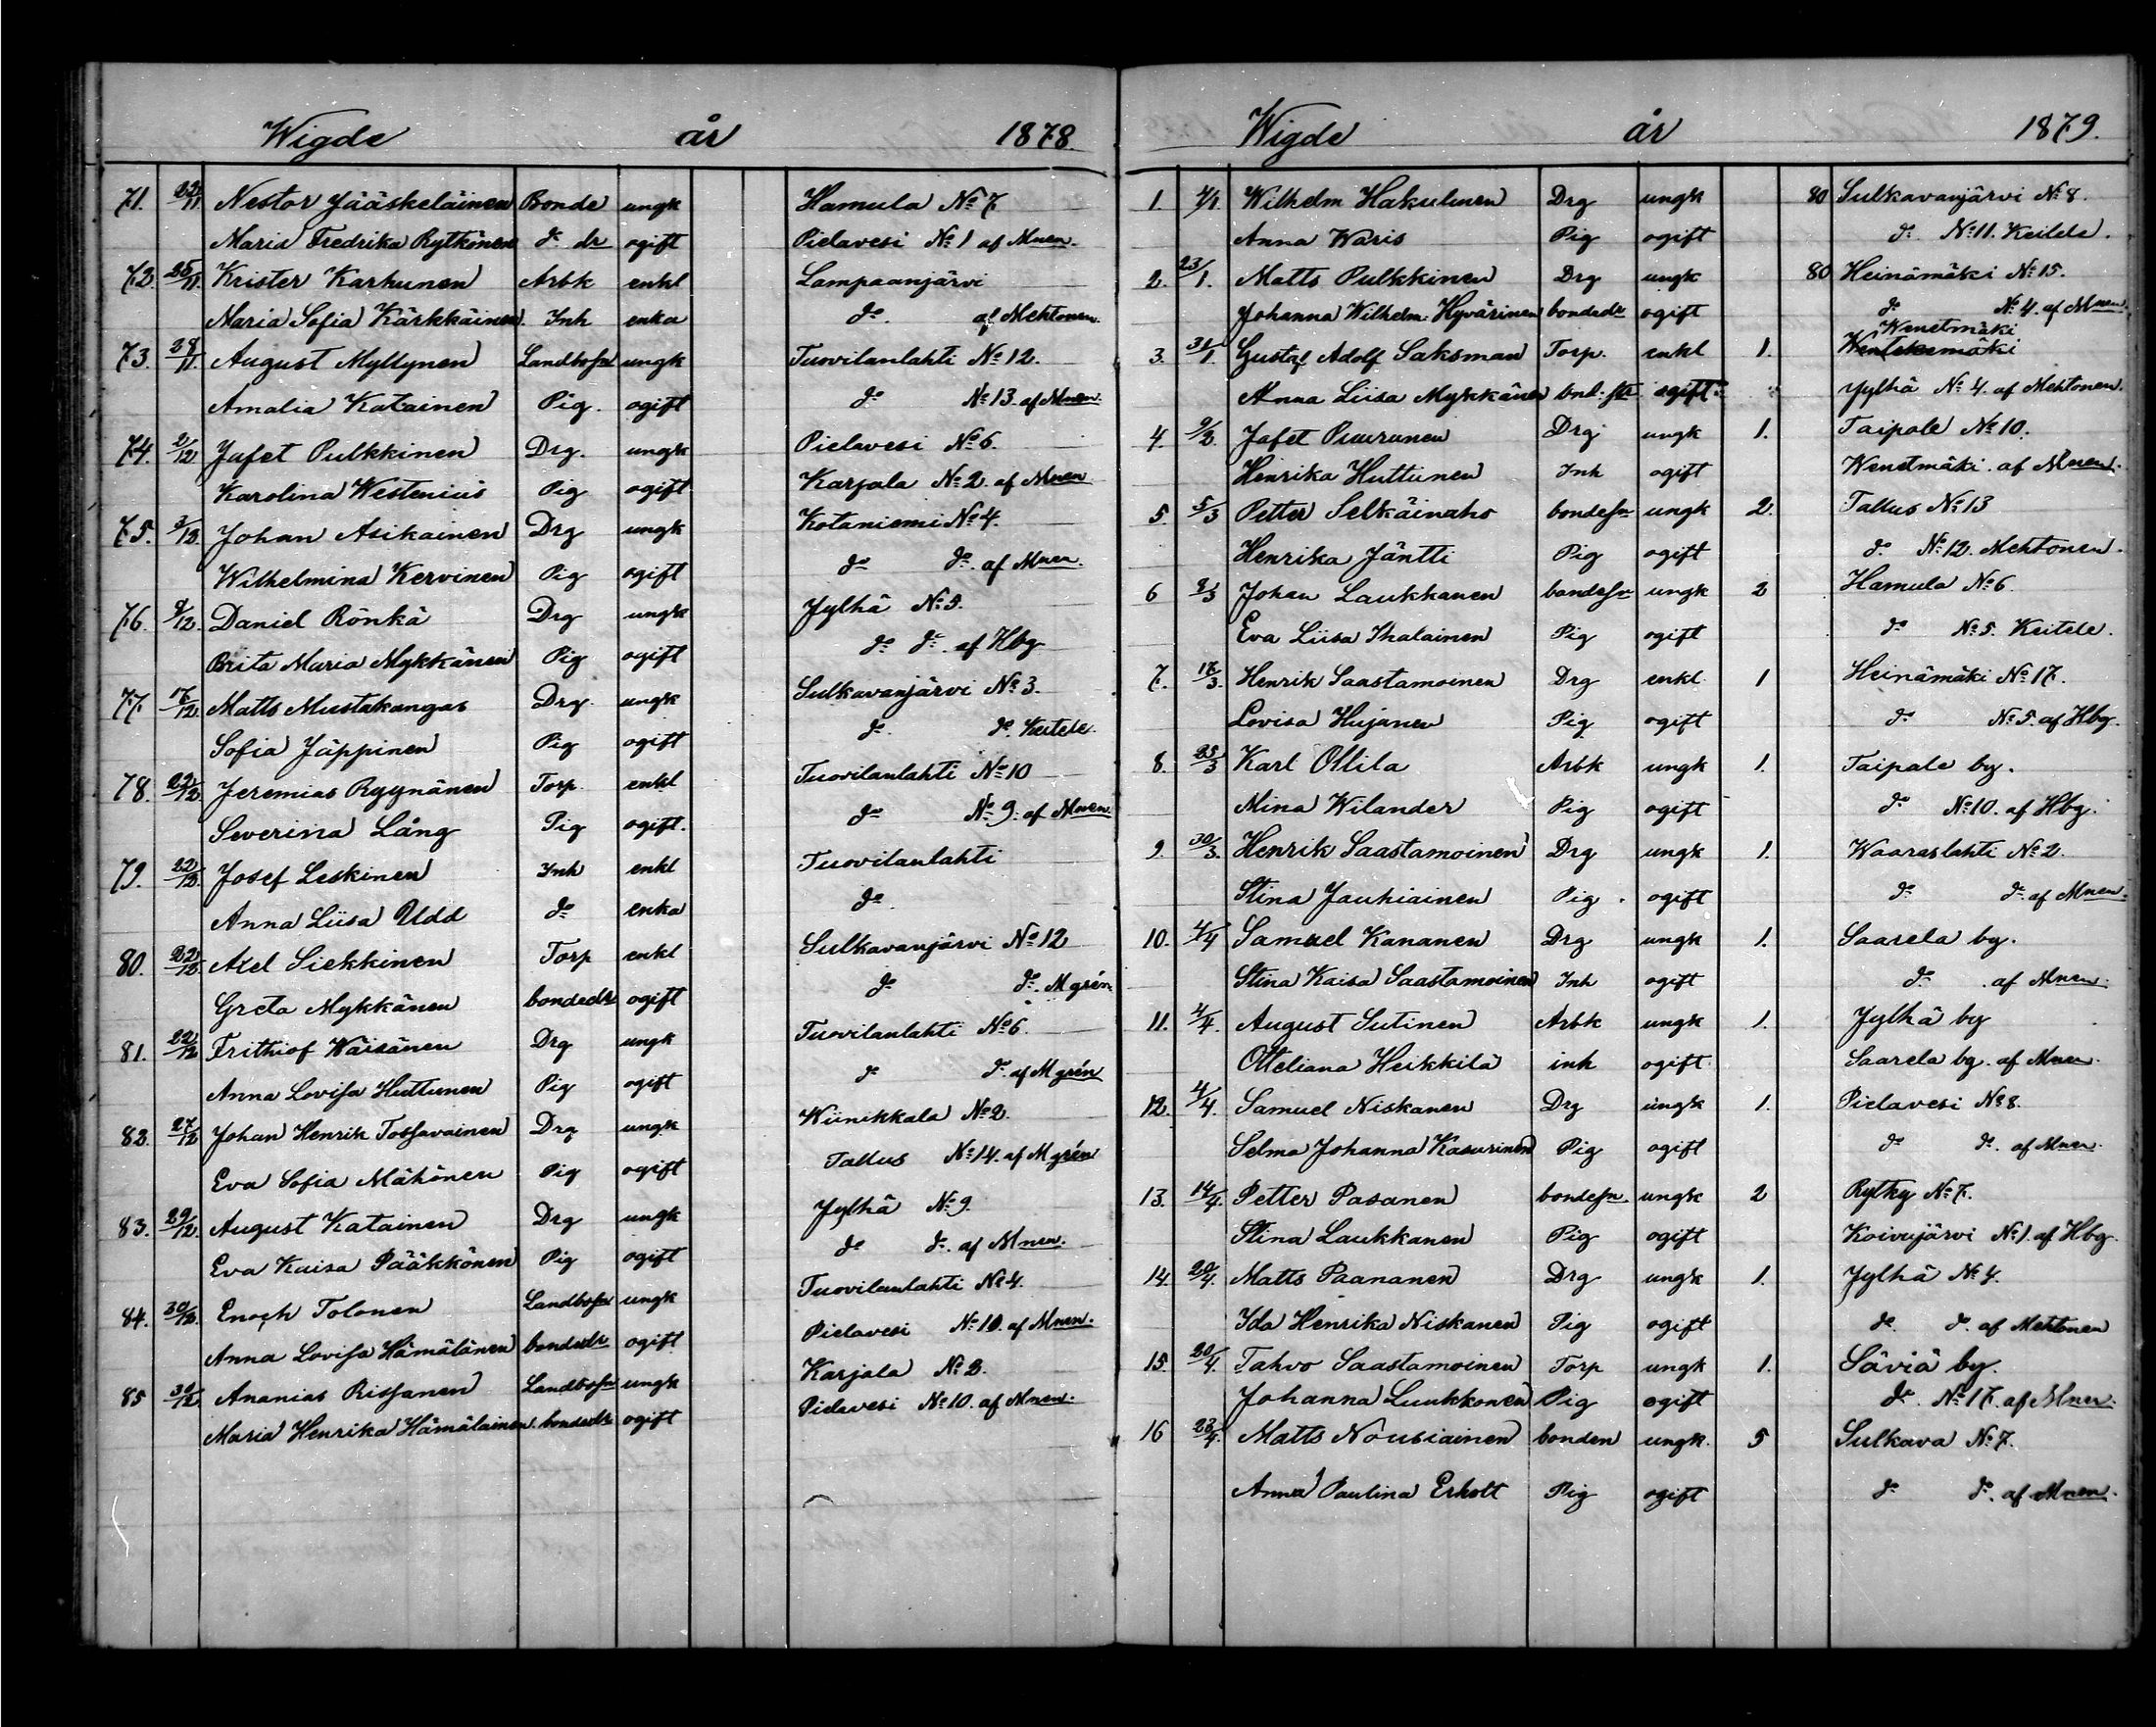 Wigde år 1878
71. 22/11. Nestor Jääskeläinen Bonde ungk Hamula No 7
Maria Fredrika Rytkönen do dr ogift Pielavesi No 1 af Mnen.
72. 25/11. Krister Karhunen Arbk enkl Lampaanjärvi
Maria Sofia Kärkkäinen. Inh enka do. af Mehtonen.
73. 28/11. August Myllynen Landbosn ungk Tuovilanlahti No 12.
Amalia Katainen Pig. ogift do No 13. af Mnen.
74. 2/12 Jafet Pulkkinen Drg. ungk Pielavesi No 6.
Karolina Westenius Pig ogift Karjala No 2. af Mnen
75. 3/12. Johan Asikainen Drg ungk Kotaniemi No 4.
Wilhelmina Kervinen Pig ogift do do. af Mnen.
76. 8/12. Daniel Rönkä Drg ungk Jylhä No 5.
Brita Maria Mykkänen Pig ogift do do. af Hbg
77. 17/12. Matts Mustakangas Drg. ungk Sulkavanjärvi No 3.
Sofia Jäppinen Pig ogift do. do. Keitele.
78. 22/12. Jeremias Ryynänen Torp. enkl Tuovilanlahti No 10
Severina Lång Pig ogift. do No 9. af Mnen.
79. 22/12. Josef Leskinen Inh enkl Tuovilanlahti
Anna Liisa Udd do enka do.
80. 22/12. Axel Siekkinen Torp enkl Sulkavanjärvi No 12
Greta Mykkänen bondedr ogift do do. Mgrén.
81. 22/12 Frithiof Waisänen Drg ungk Tuovilanlahti No 6.
Anna Lovisa Huttunen Pig ogift do do. af Mgrén
82. 27/12 Johan Henrik Tossavainen Drg ungk Wiinikkala No 2.
Eva Sofia Mähönen Pig ogift Tallus No 14. af Mgrén
83. 29/12. August Katainen Drg ungk Jylhä No 9.
Eva Kaisa Pääkkönen Pig ogift do do. af Mnen.
84. 30/12. Enoch Tolonen Landbosn ungk Tuovilanlahti No 4.
Anna Lovisa Hämäläinen bondedr ogift Pielavesi No 10. af Mnen.
85 30/12 Ananias Rissanen Landbosn ungk Karjala No 2.
Maria Henrika Hämäläinen. bondedr ogift Pielavesi No 10. af Mnen.
Wigde år 1879.
1. 4/1. Wilhelm Hakulinen Drg ungk 80 Sulkavanjärvi No 8.
Anna Waris Pig ogift do. No 11. Keitele.
2. 23/1. Matts Pulkkinen Drg ungk 80 Heinämäki No 15.
Johanna Wilhelm. Hyvärinen bondedr ogift do No 4. af Mnen
Wenetmäki
3. 31/1. Gustaf Adolf Saksman Torp. enkl 1.
Anna Liisa Mykkänen bnd. ogift Jylhä No 4. af Mehtonen.
4. 9/2. Jafet Puurunen Drg ungk 1. Taipale No 10.
Henrika Huttunen Inh ogift Wenetmäki. af Mnen.
5. 5/3 Petter Selkäinaho bondesn ungk 2. Tallus No 13
Henrika Jäntti Pig ogift do. No 12. Mehtonen.
6 9/3 Johan Laukkanen bondesn ungk 2 Hamula No 6.
Eva Liisa Ihalainen Pig ogift do No 5. Keitele.
7. 17/3. Henrik Saastamoinen Drg enkl 1 Heinämäki No 17.
Lovisa Hujanen Pig ogift do No 5. af Hbg.
8. 25/3 Karl Ollila Arbk ungk 1. Taipale by.
Mina Wilander Pig ogift do No 10. af Hbg.
9. 30/3. Henrik Saastamoinen Drg ungk 1. Waaraslahti No 2.
Stina Jauhiainen Pig. ogift do do. af Mnen.
10. 4/4 Samuel Kananen Drg ungk 1. Saarela by.
Stina Kaisa Saastamoinen Inh ogift do af Mnen.
11. 4/4. August Sutinen Arbk ungk 1. Jylhä by
Otteliana Heikkilä inh ogift Saarela by. af Mnen.
12. 4/4. Samuel Niskanen Drg ungk 1. Pielavesi No 8.
Selma Johanna Kasurinen Pig ogift do do. af Mnen.
13. 14/4. Petter Pasanen bondesn. ungk 2 Rytky No 7.
Stina Laukkanen Pig ogift Koivujärvi No 1. af Hbg.
14. 20/4. Matts Paananen Drg ungk 1. Jylhä No 4.
Ida Henrika Niskanen Pig ogift do. do. af Mehtonen
15. 20/4. Tahvo Saastamoinen Torp ungk 1. Säviä by.
Johanna Luukkonen Pig ogift do. No 17. af Mnen.
16 23/4. Matts Nousiainen bonden ungk. 5 Sulkava No 7.
Anna Paulina Erholt Pig ogift do do. af Mnen.